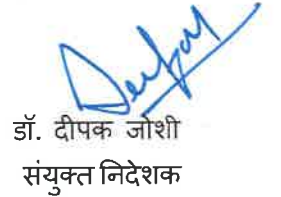 डॉ. दीपक जोशी
संयुक्त निदेशक